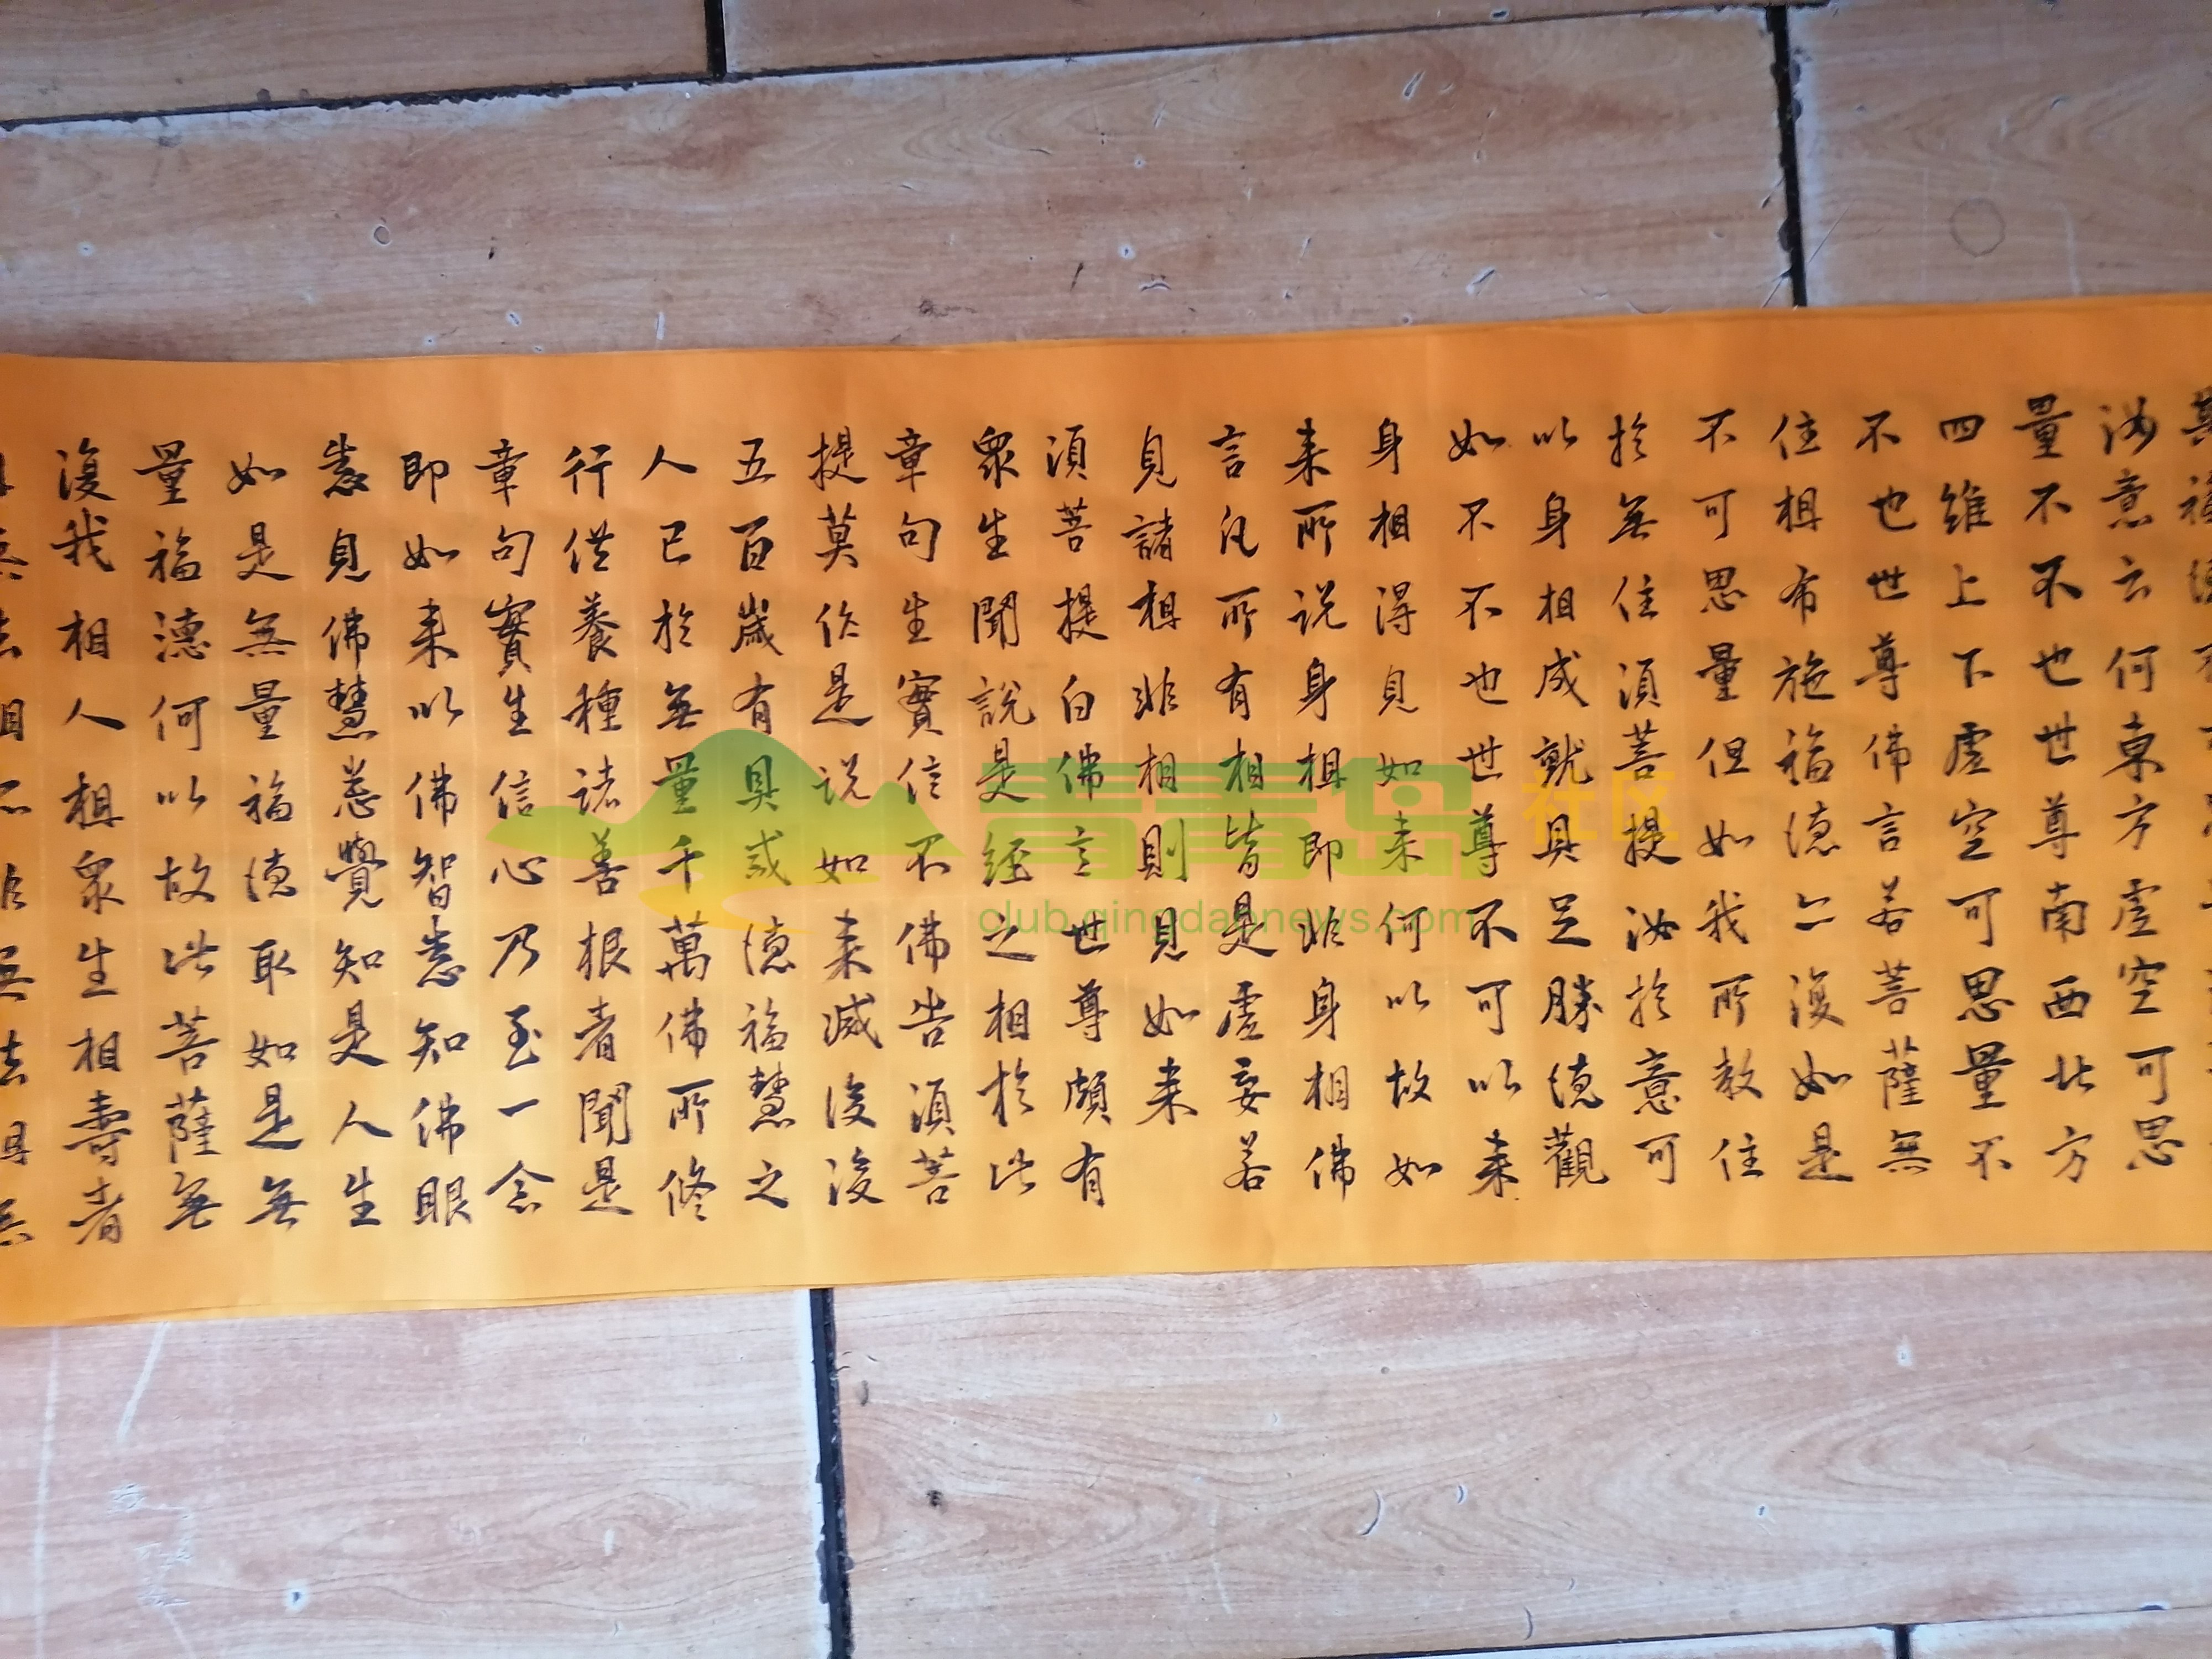 汝意云何東方虛空可思
量不不也世尊南西北方
四維上下虛空可思量不
不也世尊佛言若菩薩無
住相布施福德亦復如是
不可思量但如我所教住
於無住須菩提汝於意可
以身相成就具足勝德觀
如不不也世尊不可以来
身相得見如来何以故如
来所说身相即非身相佛
言凡所有相皆是虛妄若
見諸相非相則見如来
須菩提白佛言世尊頗有
眾生聞說是經之相於此
章句生實信不佛告須菩
提莫作是说如来滅後後
五百歲有具戒德福慧之
人已於無量千萬佛所修
行供養種诸善根者聞是
章句實生信心乃至一念
即如来以佛智悉知佛眼
悉見佛慧悉覺知是人生
如是無量福德取如是無
量福德何以故此菩薩無
復我相人相眾生相壽者
青青岛 社区
club.qingdaonews.com